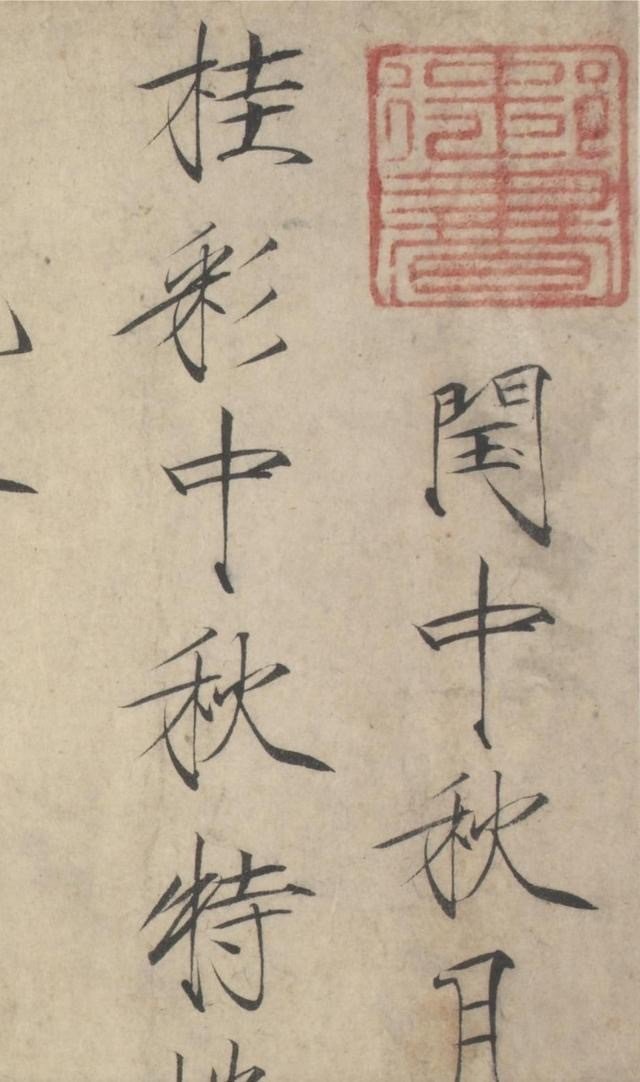 御書
閏中秋月
桂彩中秋特